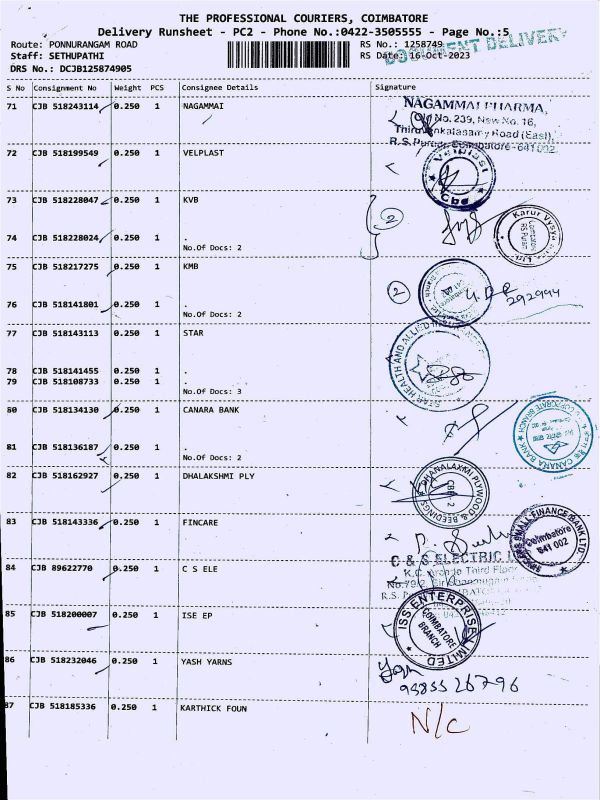 THE PROFESSIONAL COURIERS, COIMBATORE
Delivery Runsheet - PC2 - Phone No.:0422-3505555 - Page No.:5
Route: PONNURANGAM ROAD RS No.: 1258749
Staff: SETHUPATHI RS Date: 16-Oct-2023
DOCUMENT DELIVERY
DRS No.: DCJB125874905
S No Consignment No Weight PCS Consignee Details Signature
71 CJB 518243114 0.250 1 NAGAMMAI
NAGAMMAI PHARMA,
Old No. 239, New No. 16,
Thiruvenkatasamy Road (East),
R.S. Puram, Coimbatore - 641 002
72 CJB 518199549 0.250 1 VELPLAST
Cbe
73 CJB 518228047 0.250 1 KVB
2
Karur Vysya
RS Puram
74 CJB 518228024 0.250 1 .
No.Of Docs: 2
75 CJB 518217275 0.250 1 KMB
2
292994
76 CJB 518141801 0.250 1 .
No.Of Docs: 2
77 CJB 518143113 0.250 1 STAR
STAR HEALTH AND ALLIED
78 CJB 518141455 0.250 1 .
79 CJB 518108733 0.250 1 .
No.Of Docs: 3
80 CJB 518134130 0.250 1 CANARA BANK
CANARA BANK
CORPORATE BRANCH
81 CJB 518136187 0.250 1 .
No.Of Docs: 2
82 CJB 518162927 0.250 1 DHALAKSHMI PLY
DHANALAXMI PLYWOOD & BEEDINGS
CBE 2
83 CJB 518143336 0.250 1 FINCARE
FINCARE SMALL FINANCE BANK LTD
Coimbatore
641 002
84 CJB 89622770 0.250 1 C S ELE
C & S ELECTRIC
Third Floor
85 CJB 518200007 0.250 1 ISE EP
ISS ENTERPRISE LIMITED
COIMBATORE
BRANCH
86 CJB 518232046 0.250 1 YASH YARNS
87 CJB 518185336 0.250 1 KARTHICK FOUN
N/C